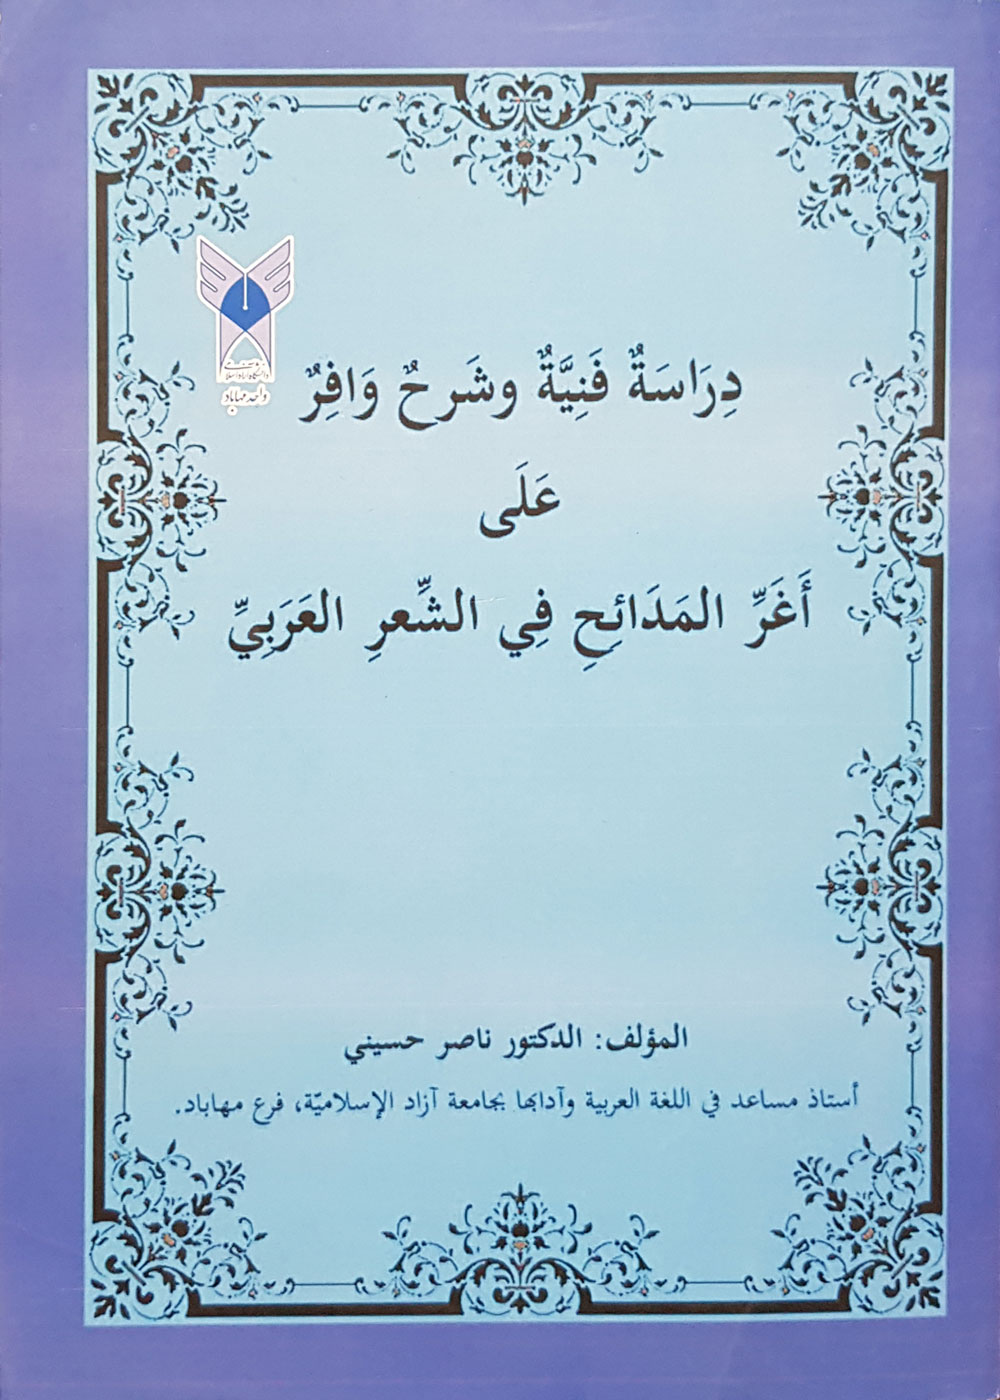 دانشگاه آزاد اسلامی
واحد مهاباد
دِرَاسَةٌ فَنِيَّةٌ وشَرحٌ وَافِرٌ
عَلَى
أَغَرِّ المَدَائِحِ فِي الشِّعرِ العَرَبِيِّ
المؤلف: الدكتور ناصر حسيني
أستاذ مساعد في اللغة العربية وآدابها بجامعة آزاد الإسلاميّة، فرع مهاباد.